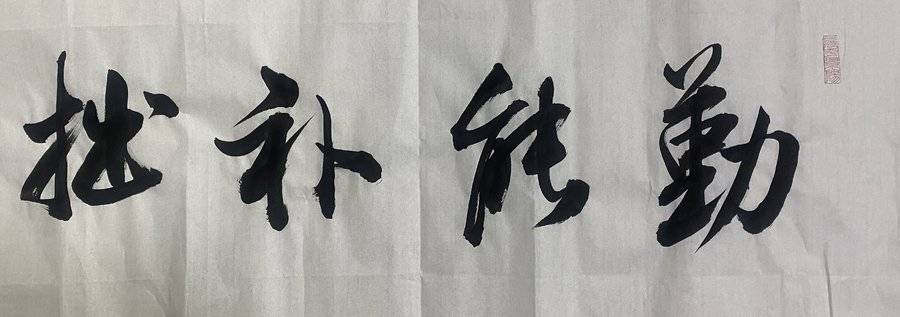 勤能补拙